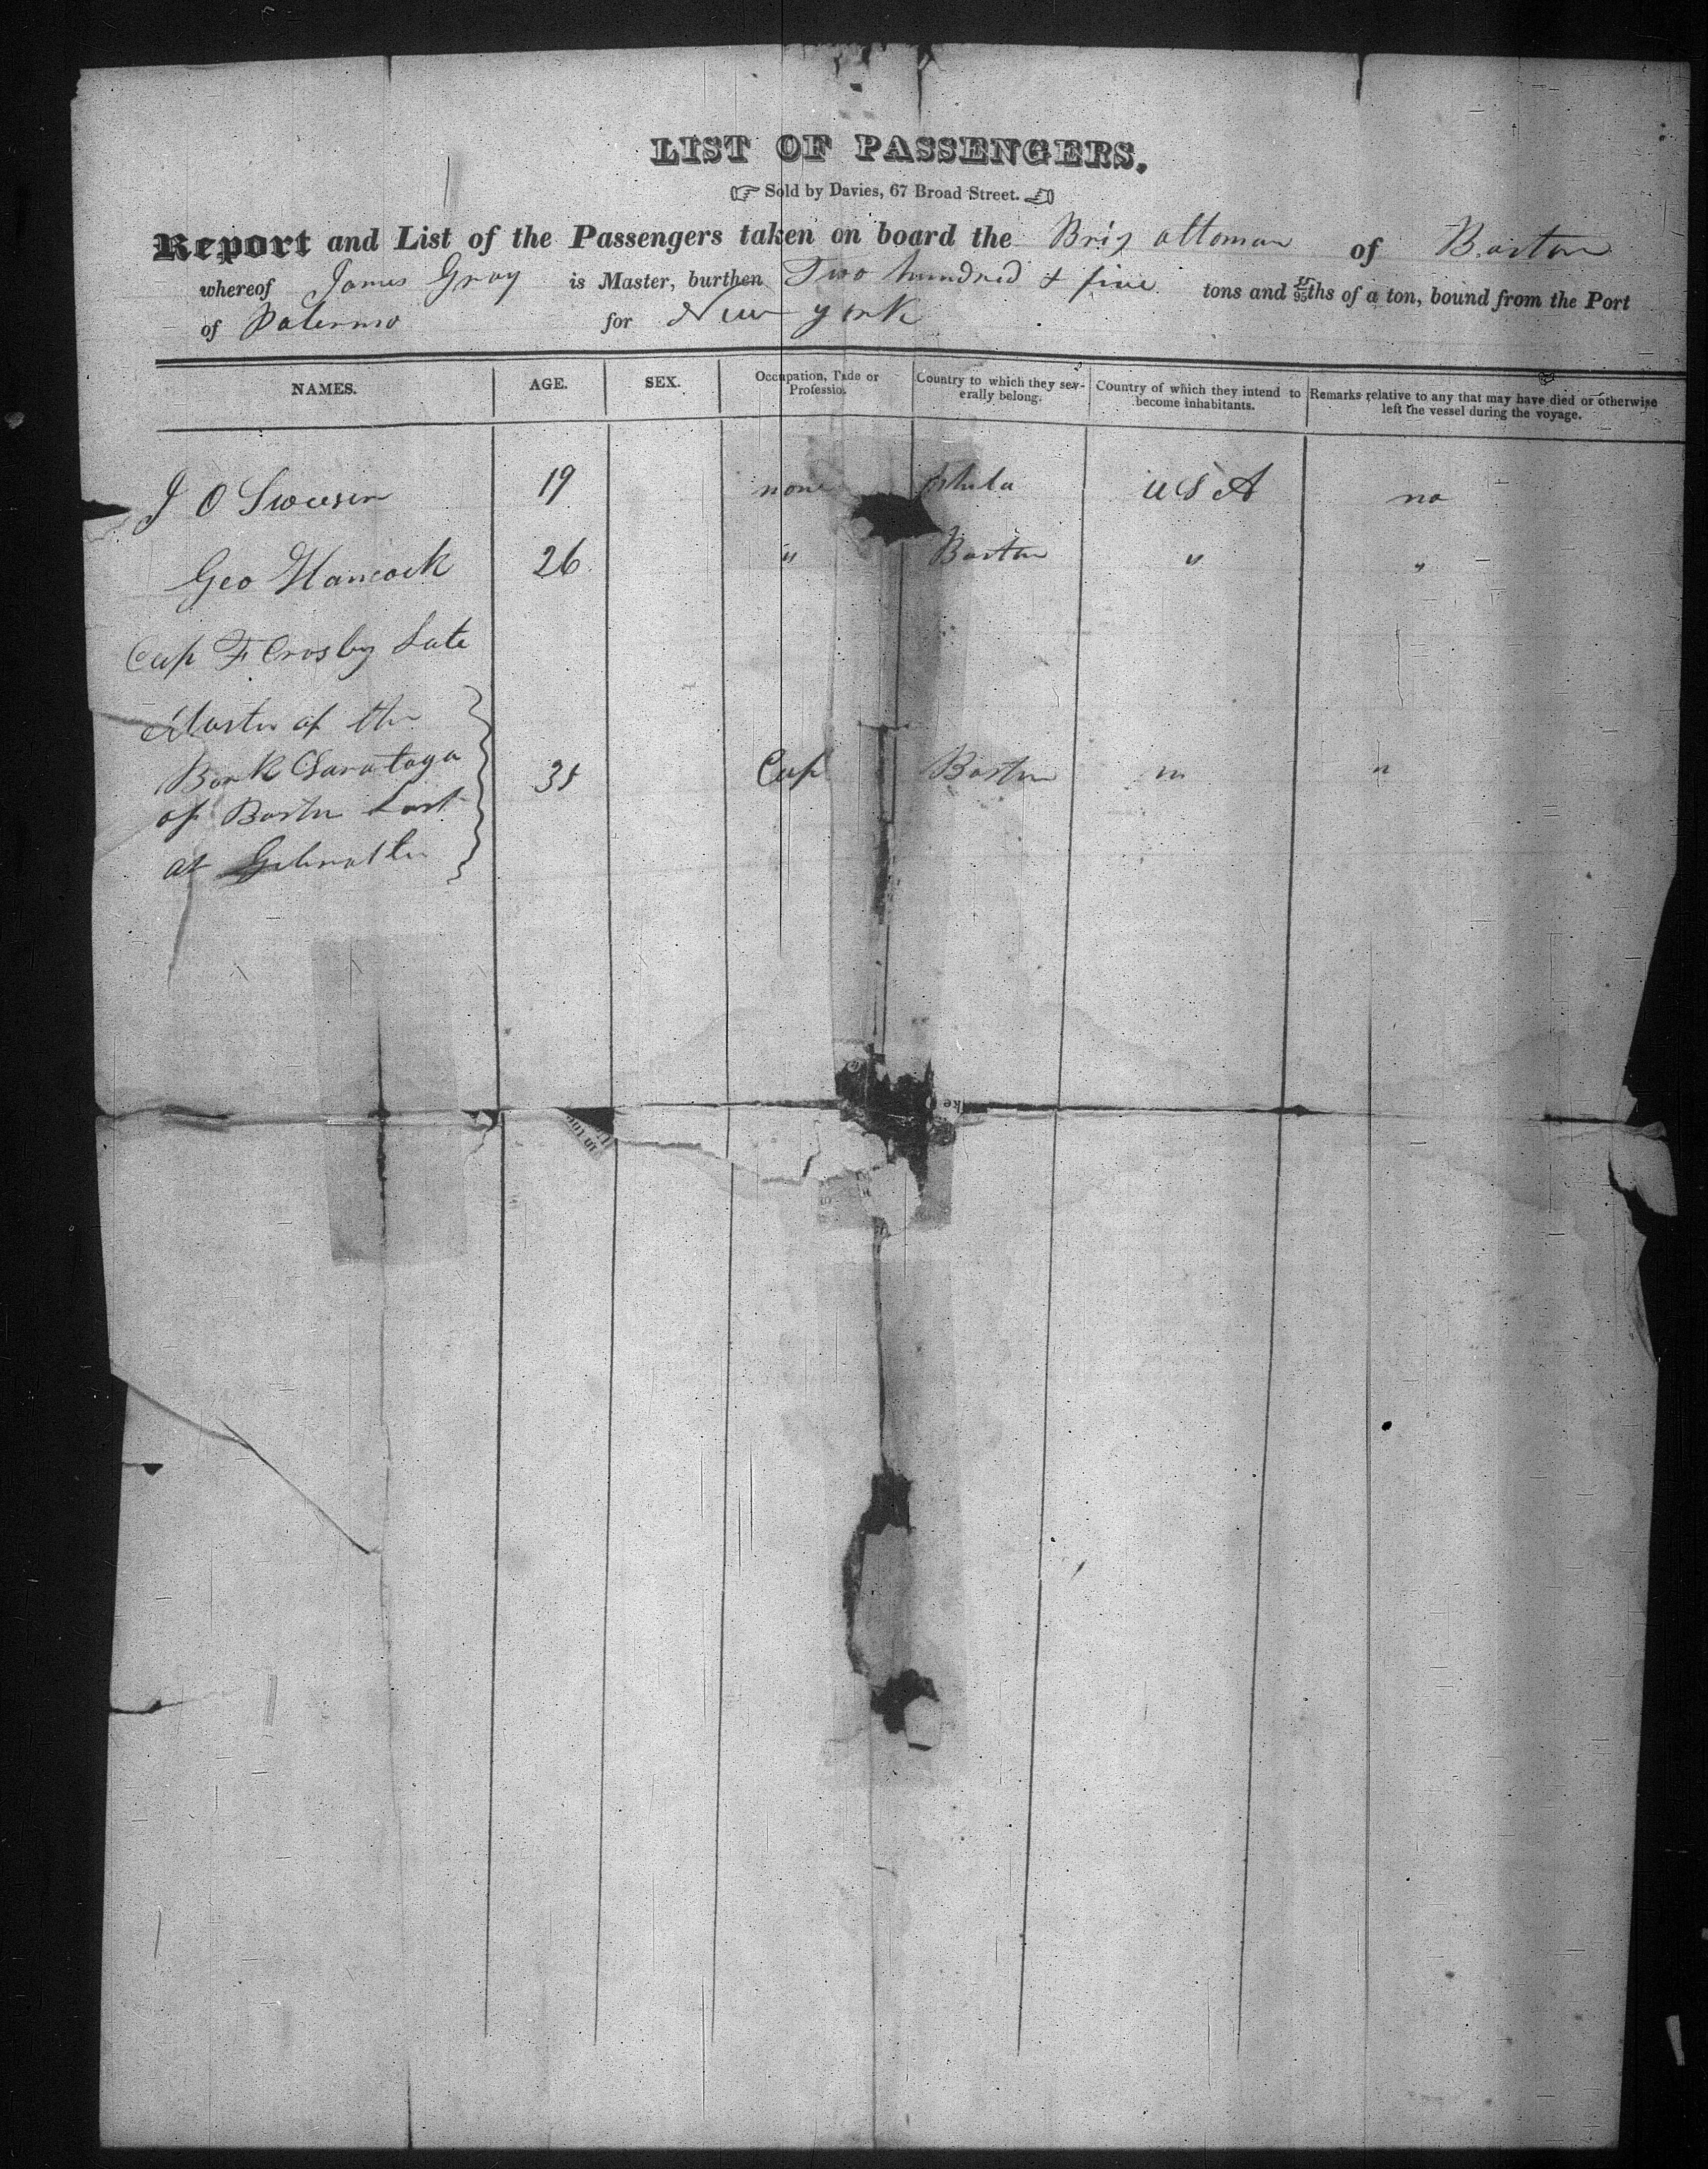 LIST OF PASSENGERS.
Sold by Davies, 67 Broad Street.
Report and List of the Passengers taken on board the Brig Ottoman of Boston
whereof James Gray is Master, burthen Two hundred & five tons and /95ths of a ton, bound from the Port
of Palermo for New york
NAMES. AGE. SEX. Occupation, Trade or Profession. Country to which they severally belong. Country of which they intend to become inhabitants. Remarks relative to any that may have died or otherwise left the vessel during the voyage.
J O 19 none Phila U S A no
Geo Hancock 26 " Boston " "
Cap F Crosby Late
Master of the
Bark Saratoga Cap Boston " "
of Boston Lost
at